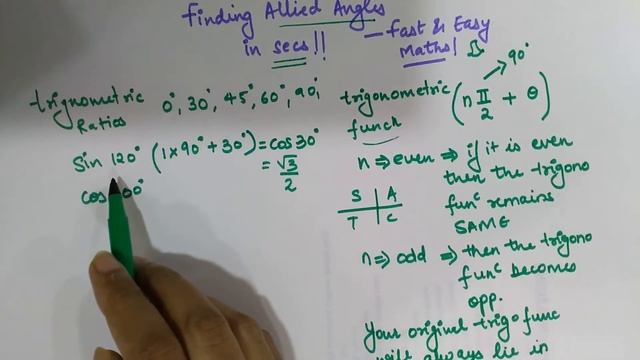 Finding Allied Angles
in secs!!
— Fast & Easy
Maths!
trignometric
Ratios
0°, 30°, 45°, 60°, 90°,
sin 120° (1×90° + 30°) = cos 30°
= √3/2
cos
0°
90°
trigonometric (n π/2 + θ)
funcn
n ⇒ even ⇒ if it is even
then the trigono
func remains
SAME
S | A
T | C
n ⇒ odd ⇒ then the trigono
func becomes
opp.
Your original trigo func
will always lie in